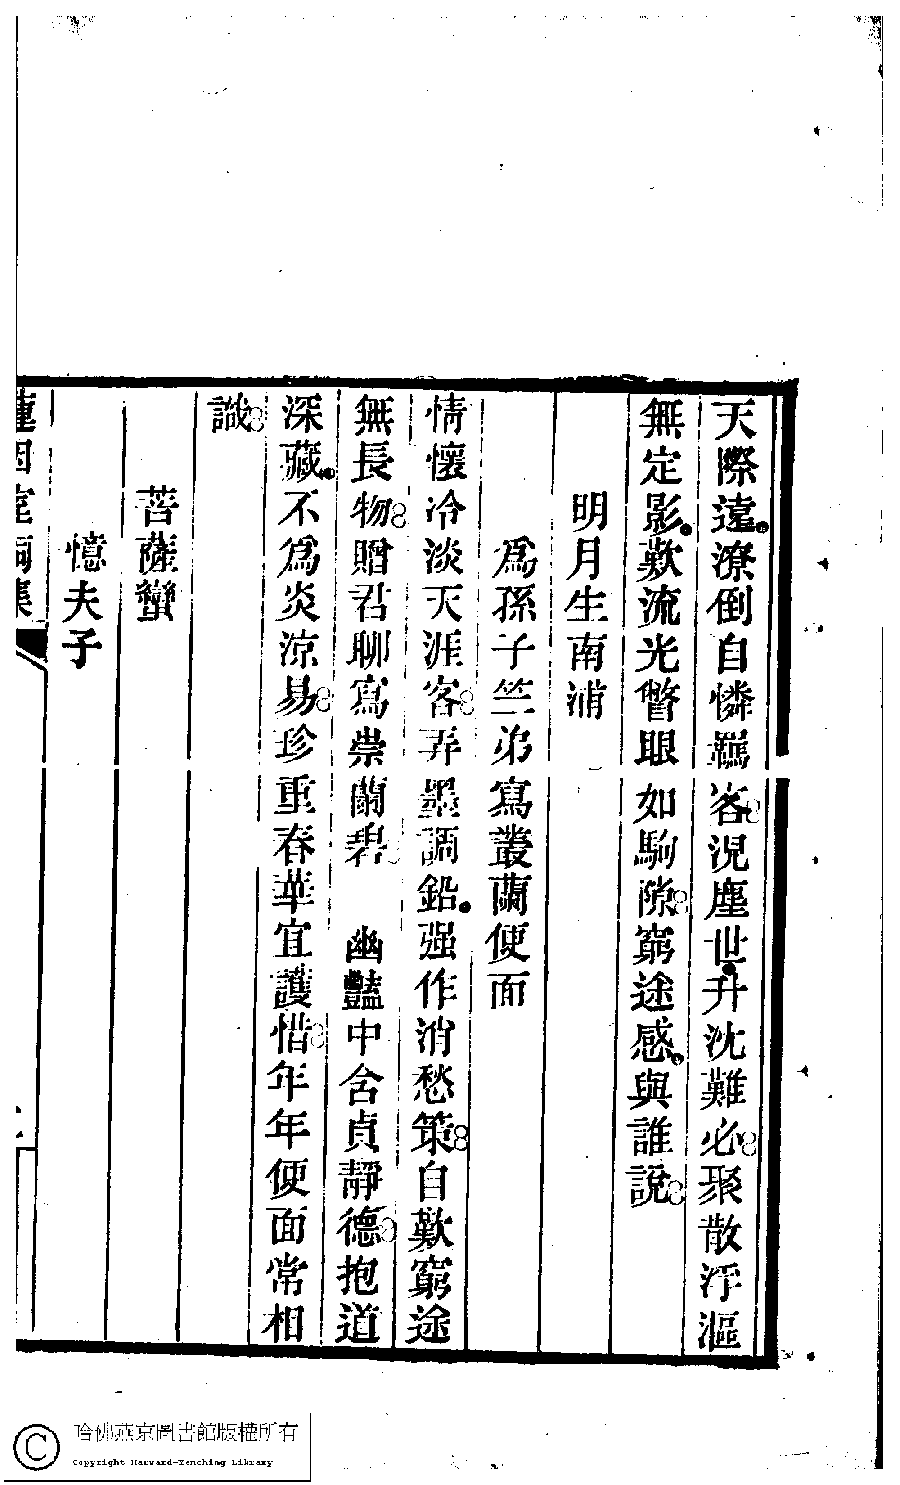 天際遠潦倒自憐羈客況塵世升沈難必聚散浮漚
無定影歎流光瞥眼如駒隙窮途感與誰說
明月生南浦
為孫子竺弟寫叢蘭便面
情懷冷淡天涯客弄墨調鉛强作消愁策自歎窮途
無長物贈君聊寫崇蘭碧　幽豔中含貞靜德抱道
深藏不為炎涼易珍重春華宜護惜年年便面常相
識
菩薩蠻
憶夫子
蓮因室詞集
哈佛燕京圖書館版權所有
Copyright Harvard-Yenching Library